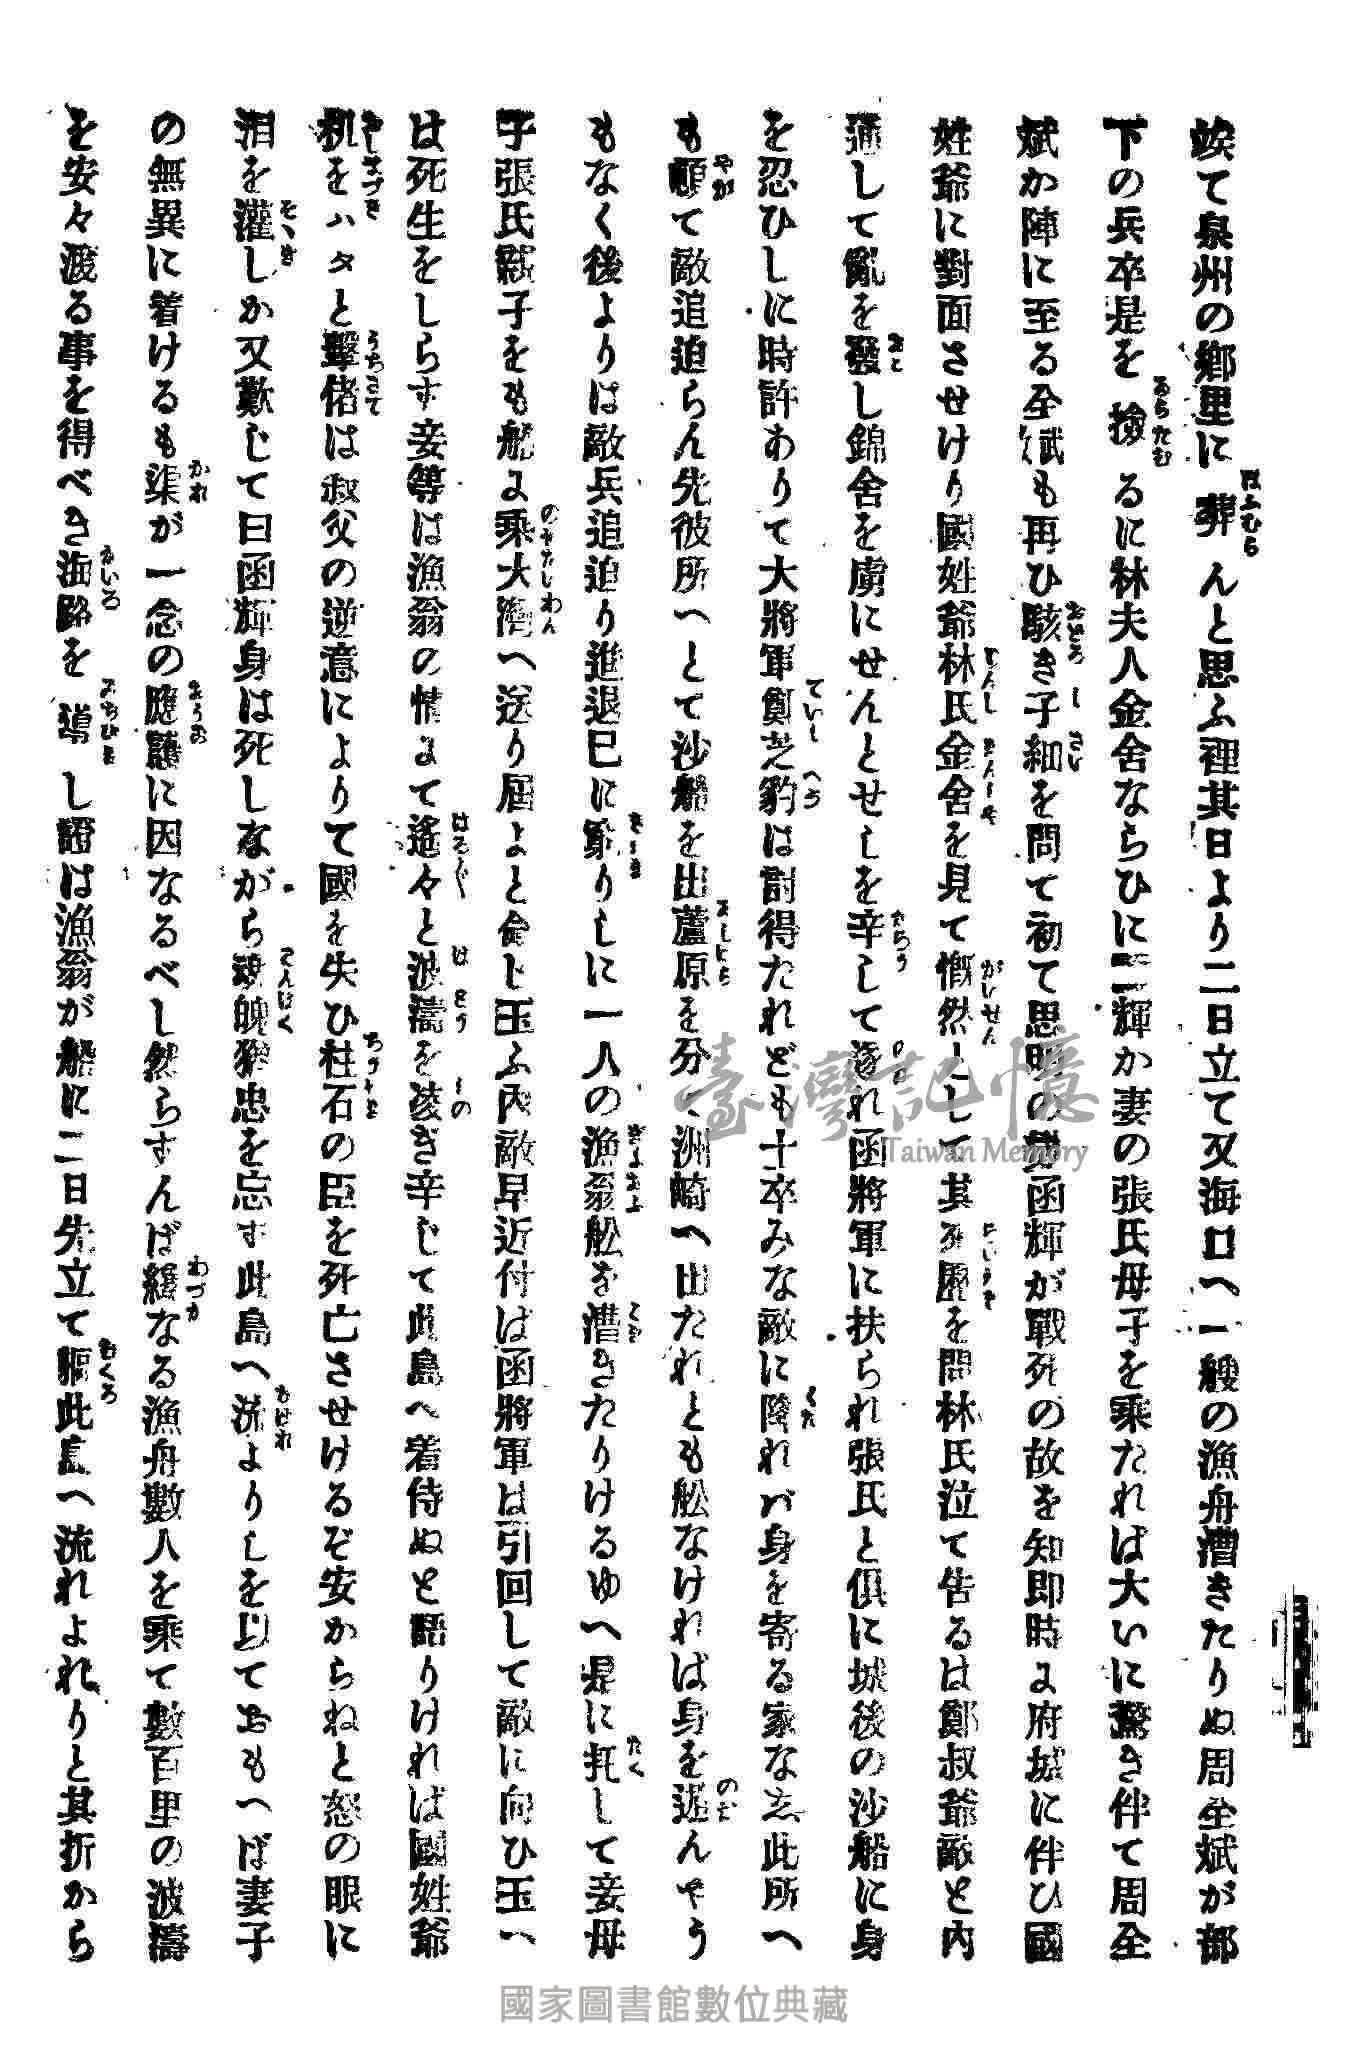 竢て泉州の鄉里に葬んと思ふ裡其日より二日立て又海口へ一艘の漁舟漕きたりぬ周全斌が部
下の兵卒是を撿るに林夫人金舍ならひに輝か妻の張氏母子を乘たれば大いに驚き伴て周全
斌か陣に至る全斌も再ひ駭き子細を問て初て思明の勢函輝が戰死の故を知即時に府城に伴ひ國
姓爺に對面させけり國姓爺林氏金舍を見て慨然として其死を問林氏泣て告るは鄭叔爺敵と內
通して亂を發し錦舍を虜にせんとせしを辛して逐れ函將軍に扶られ張氏と俱に城後の沙船に身
を忍ひしに時許ありて大將軍鄭芝豹は討得たれども士卒みな敵に降れバ身を寄る家なし此所へ
も頓て敵追迫らん先彼所へとて沙船を出蘆原を分て洲崎へ出たれとも舩なければ身を遁んやう
もなく後よりは敵兵追迫り進退已に窮りしに一人の漁翁舩を漕きたりけるゆへ是に托して妾母
子張氏親子をも舩に乘大灣へ送り屆よと命じ玉ふ內敵早近付ば函將軍は引回して敵に向ひ玉ハ
は死生をしらす妾等は漁翁の情にて遙々と波濤を凌ぎ辛じて此島へ着侍ぬと語りければ國姓爺
机をハタと擊偖は叔父の逆意によりて國を失ひ柱石の臣を死亡させけるぞ安からねと怒の眼に
泪を灌しか又歎じて曰函輝身は死しながら魂魄猶忠を忘す此島へ流よりしを以ておもへば妻子
の無異に着けるも渠が一念の應護に因なるべし然らすんば纔なる漁舟數人を乘て數百里の波濤
を安々渡る事を得べき海路を導し證は漁翁が船に二日先立て軀此島へ流れよれりと其折から
臺灣記憶
Taiwan Memory
國家圖書館數位典藏